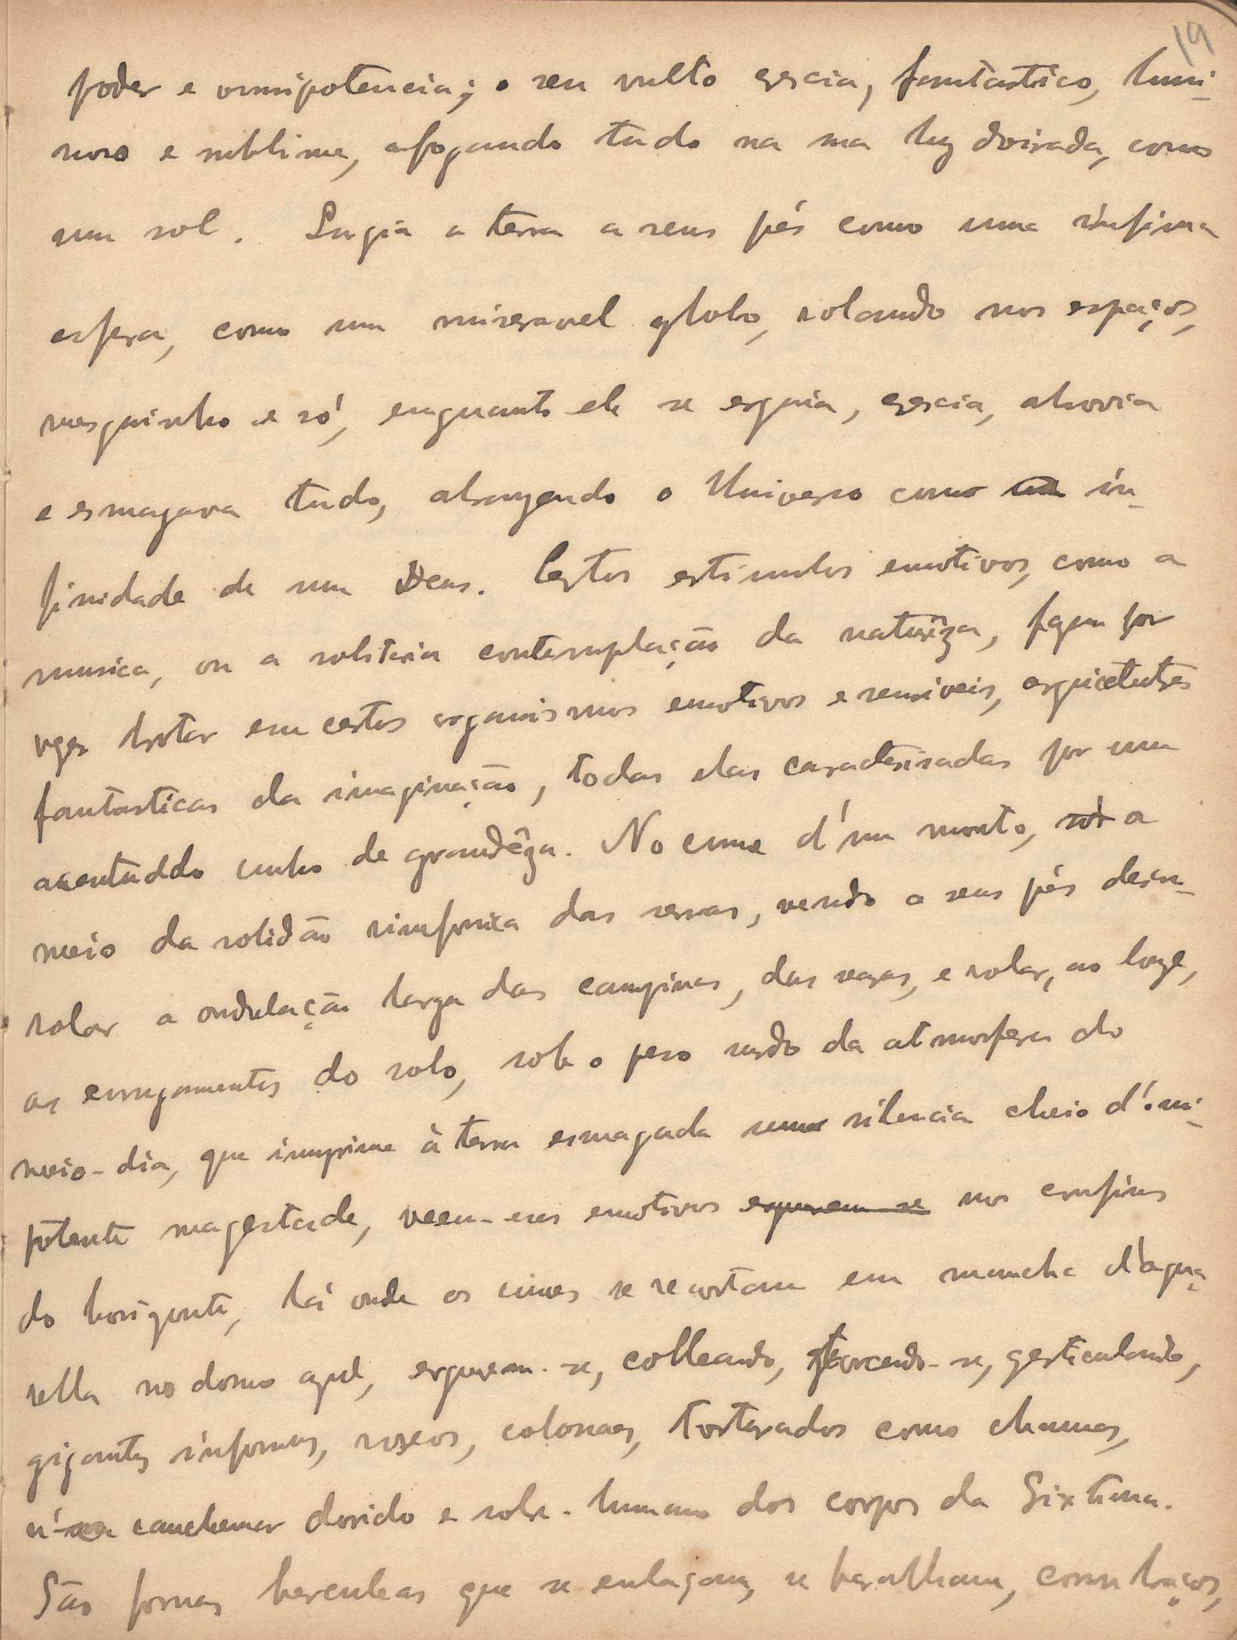 19
poder e omnipotencia; o seu vulto crescia, fantastico, lumi-
noso e sublime, afogando tudo na sua luz doirada, como
um sol. Surgia a terra a seus pés como uma ínfima
esfera, como um miseravel globo, rolando nos espaços,
mesquinho e só, enquanto ele se erguia, crescia, absorvia
e esmagava tudo, abrangendo o Universo como in-
finidade de um Deus. Certos estimulos emotivos, como a
musica, ou a solitaria contemplação da naturêza, fazem por
vezes brotar em certos organismos emotivos e sensiveis, arquitectures
fantasticas da imaginação, todas elas caracterisadas por um
acentuddo cunho de grandêza. No cume d'um monte, a
meio da solidão sinfonica das serras, vendo a seus pés desen-
rolar a ondulação larga das campinas, das veigas, e rolar, ao longe,
os enrugamentos do solo, sob o peso surdo da atmosfera do
meio-dia, que imprime à terra esmagada um silencio cheio d'omni-
potente magestade, veem-nos emotivos erguerem-se nos confins
do horizonte, lá onde os cumes se recortam em mancha d'agua-
rella no domo azul, erguerem-se, colleando, torcendo-se, gesticulando,
gigantes informes, roseos, colossaes, torturados como chamas,
n'um cauchemar dorido e sobre-humano dos corpos da Sixtina.
São formas herculeas que se enlaçam, se baralham, com braços,